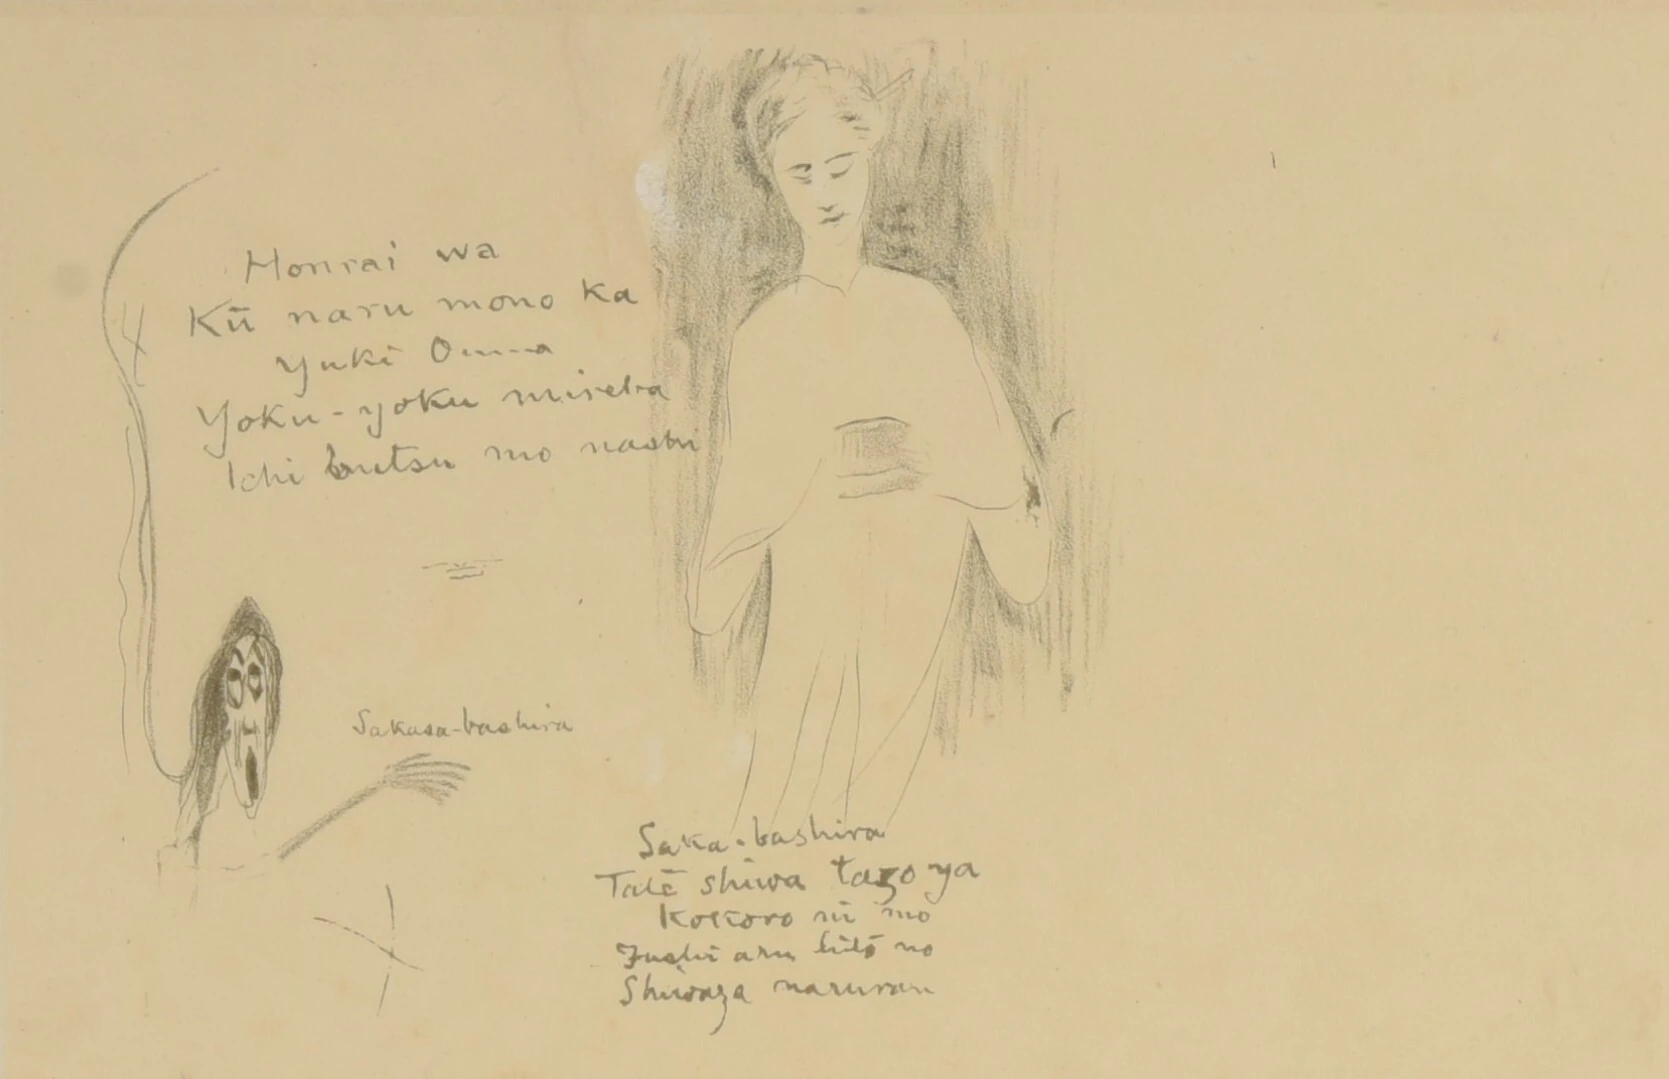 Honrai wa
Kū naru mono ka
Yuki Onna
Yoku-yoku mireba
Ichi butsu mo nashi
Sakasa-bashira
Saka-bashira
Tatē shiwa tazo ya
Kokoro ni mo
Fushi aru hito no
Shiwaza naruran